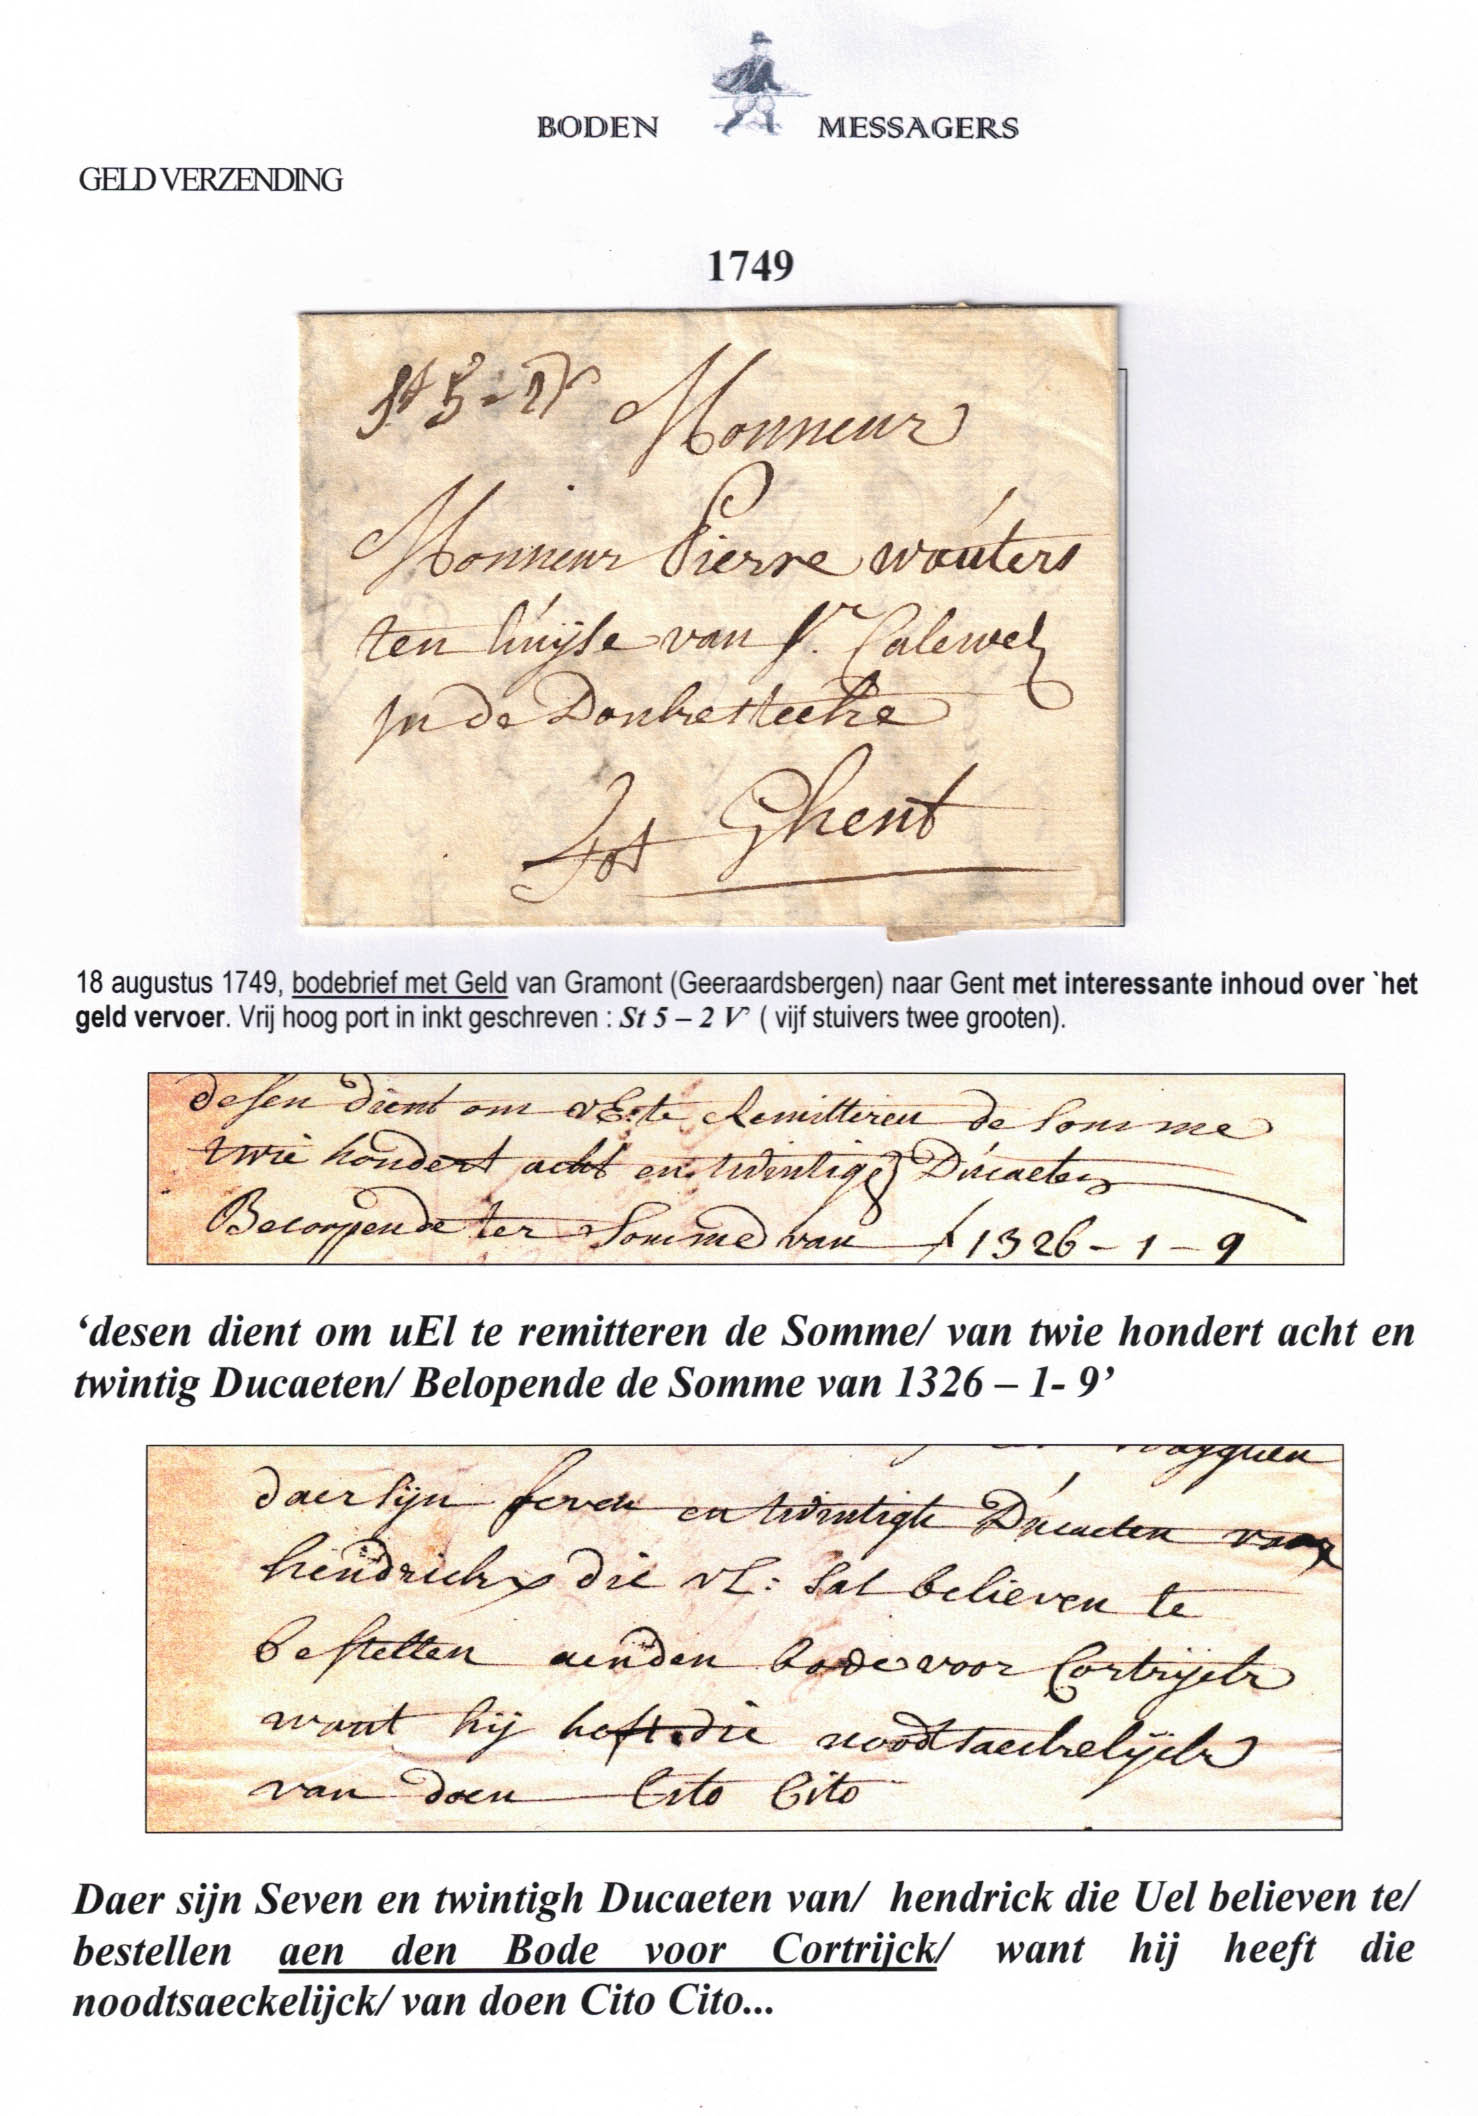 BODEN MESSAGERS
GELD VERZENDING
1749
St 5 - 2
Monsieur
Monsieur Pierre wouters
ten huijse van Sr. Calewel
in de Donkersteeke
Tot Ghent
18 augustus 1749, bodebrief met Geld van Gramont (Geeraardsbergen) naar Gent met interessante inhoud over `het
geld vervoer. Vrij hoog port in inkt geschreven : St 5 – 2 V` ( vijf stuivers twee grooten).
desen dient om vE: te Remitteren de Somme
twie hondert acht en twintigh Ducaeten
Beloopende ter Somme van f 1326 - 1 - 9
‘desen dient om uEl te remitteren de Somme/ van twie hondert acht en
twintig Ducaeten/ Belopende de Somme van 1326 – 1- 9’
daer sijn seven en twintigh Ducaeten van
hendrick die vL: sal believen te
bestellen aen den bode voor Cortrijck
want hij heft die noodtsaeckelijck
van doen Cito Cito
Daer sijn Seven en twintigh Ducaeten van/ hendrick die Uel believen te/
bestellen aen den Bode voor Cortrijck/ want hij heeft die
noodtsaeckelijck/ van doen Cito Cito...